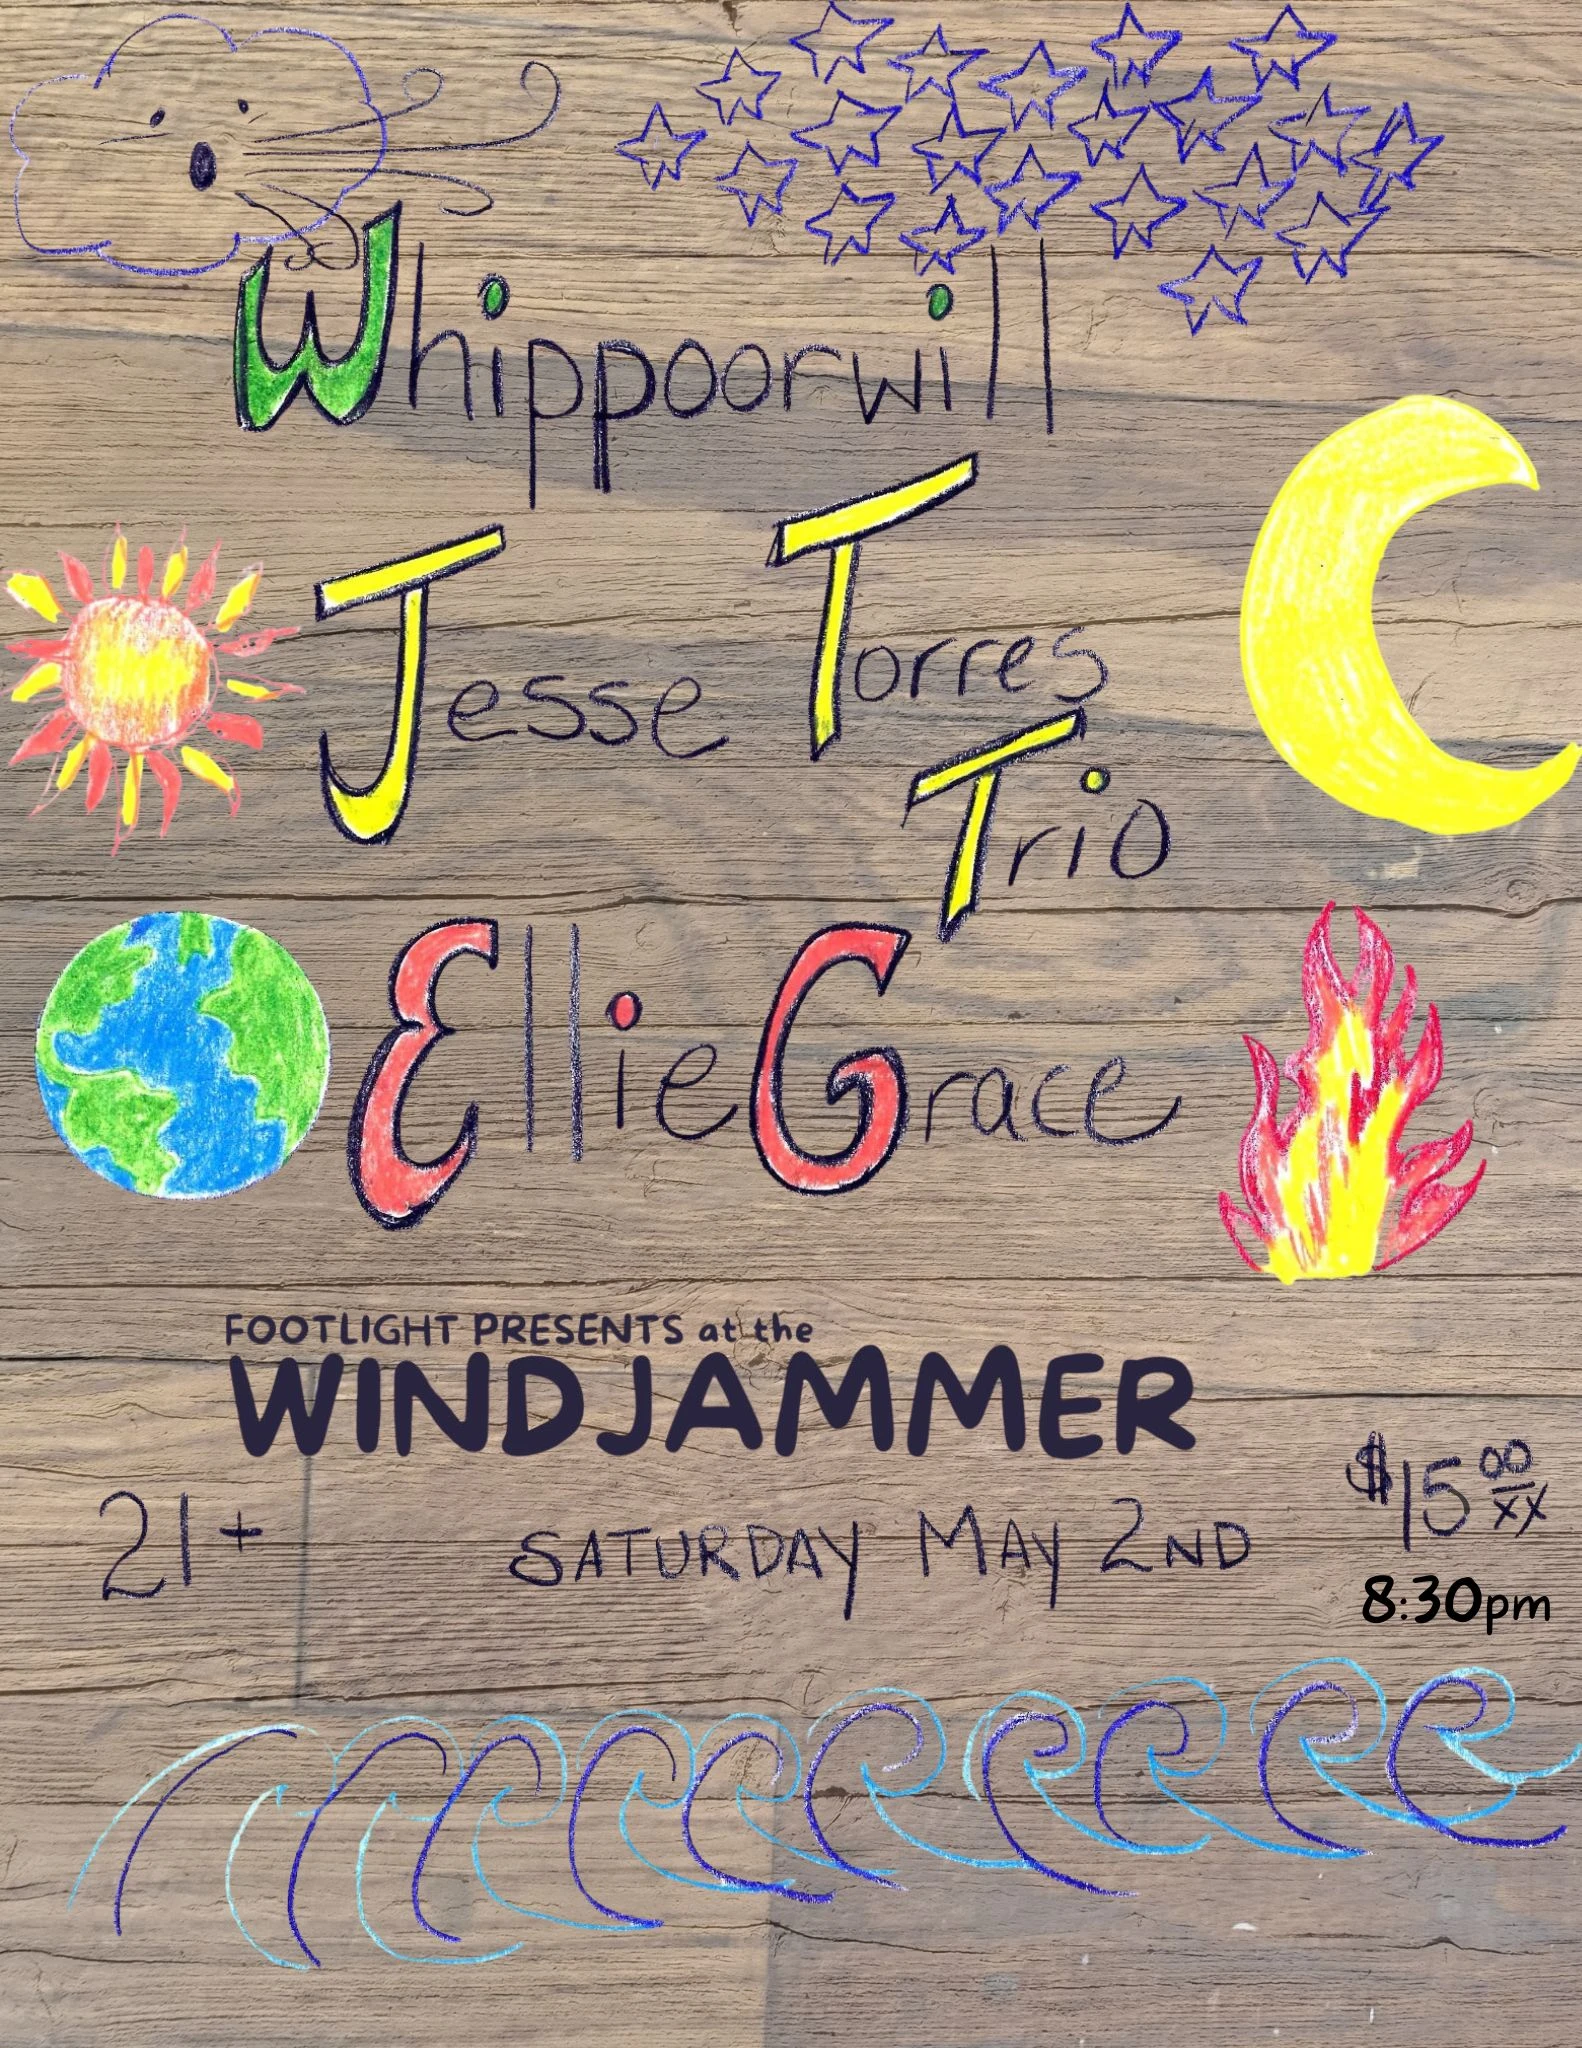 Whippoorwill
Jesse Torres
Trio
Ellie Grace
FOOTLIGHT PRESENTS at the
WINDJAMMER
$15 00/xx
21+ SATURDAY MAY 2ND
8:30pm